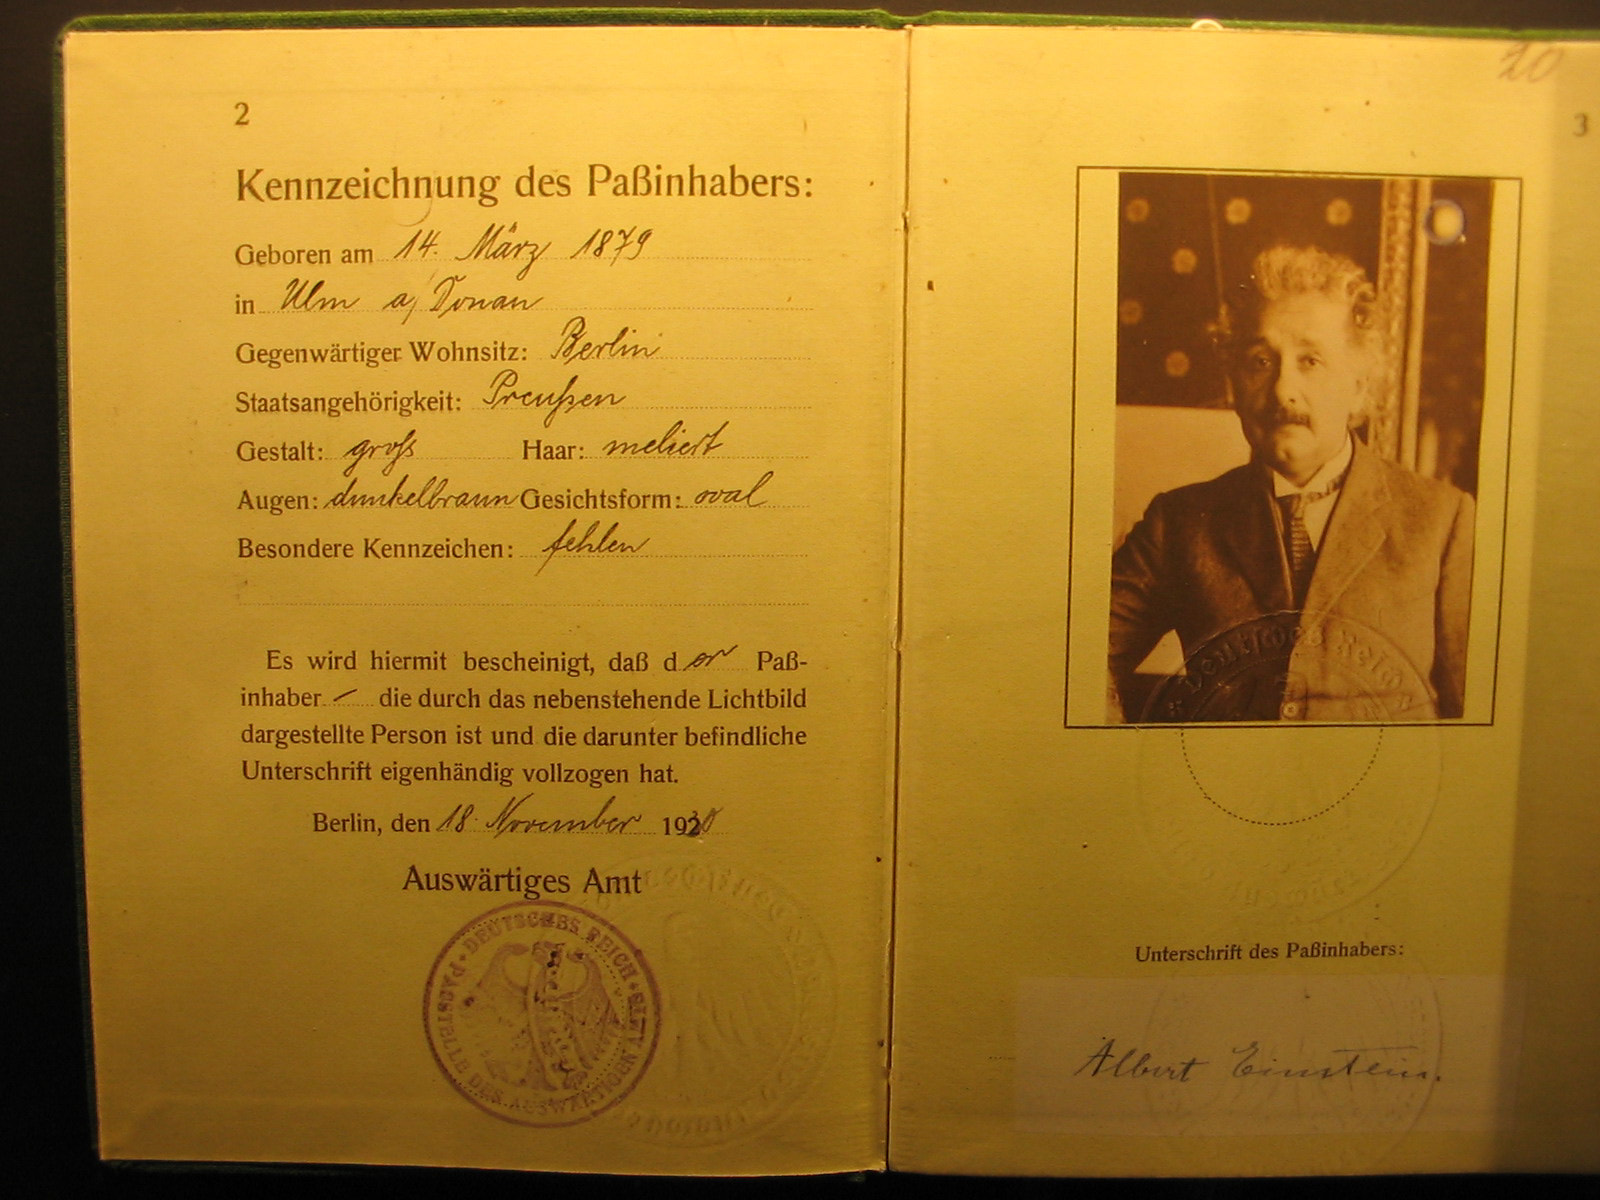 2
Kennzeichnung des Paßinhabers:
Geboren am 14. März 1879
in Ulm a/Donau
Gegenwärtiger Wohnsitz: Berlin
Staatsangehörigkeit: Preußen
Gestalt: groß Haar: meliert
Augen: dunkelbraun Gesichtsform: oval
Besondere Kennzeichen: fehlen
Es wird hiermit bescheinigt, daß der Paß-
inhaber – die durch das nebenstehende Lichtbild
dargestellte Person ist und die darunter befindliche
Unterschrift eigenhändig vollzogen hat.
Berlin, den 18. November 1920
Auswärtiges Amt
DEUTSCHES REICH
PASSTELLE DES AUSWÄRTIGEN AMTS
20
3
Deutsches Reich
Unterschrift des Paßinhabers:
Albert Einstein.